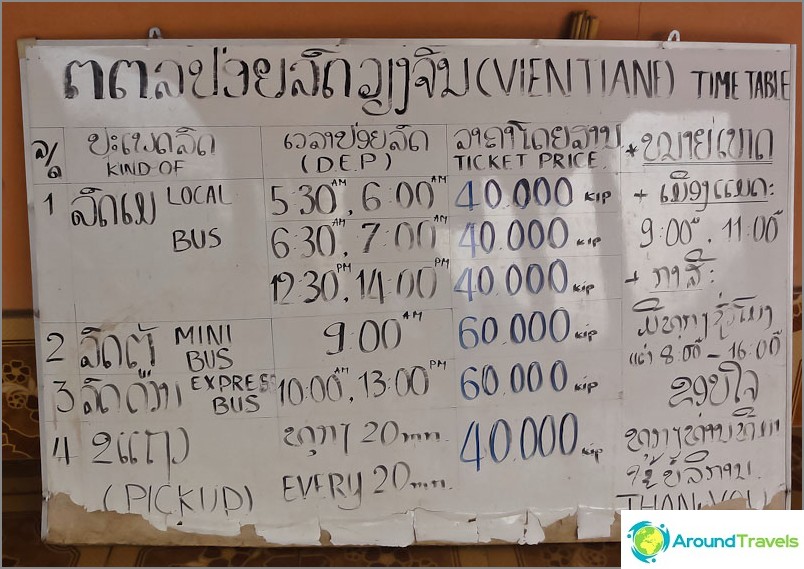 ຕຕລປ່ອຍລົດວຽງຈັນ (VIENTIANE) TIME TABLE
ລ/ດ ປະເພດລົດ ເວລາປ່ອຍລົດ ລາຄາໂດຍສານ *ໝາຍເຫດ
KIND OF (D.E.P) TICKET PRICE.
1 ລົດເມ LOCAL BUS 5:30 AM, 6:00 AM 40.000 KIP + ເມືອງແມດ:
6:30, 7:00 AM 40.000 KIP 9:00, 11:00
12:30 PM, 14:00 PM 40.000 KIP + ກາສີ:
2 ລົດຕູ້ MINI BUS 9:00 AM 60.000 KIP ມີທຸກໆຊົ່ວໂມງ
ແຕ່ 8:00 - 16:00
3 ລົດດ່ວນ EXPRESS BUS 10:00 AM, 13:00 PM 60.000 KIP ຂອບໃຈ
4 ຂແຖວ ທຸກໆ 20 mn. 40.000 KIP ທຸກໆທ່ານທີ່ມາ
ໃຊ້ບໍລິການ.
(PICKUP) EVERY 20 mn. THANK YOU
AroundTravels